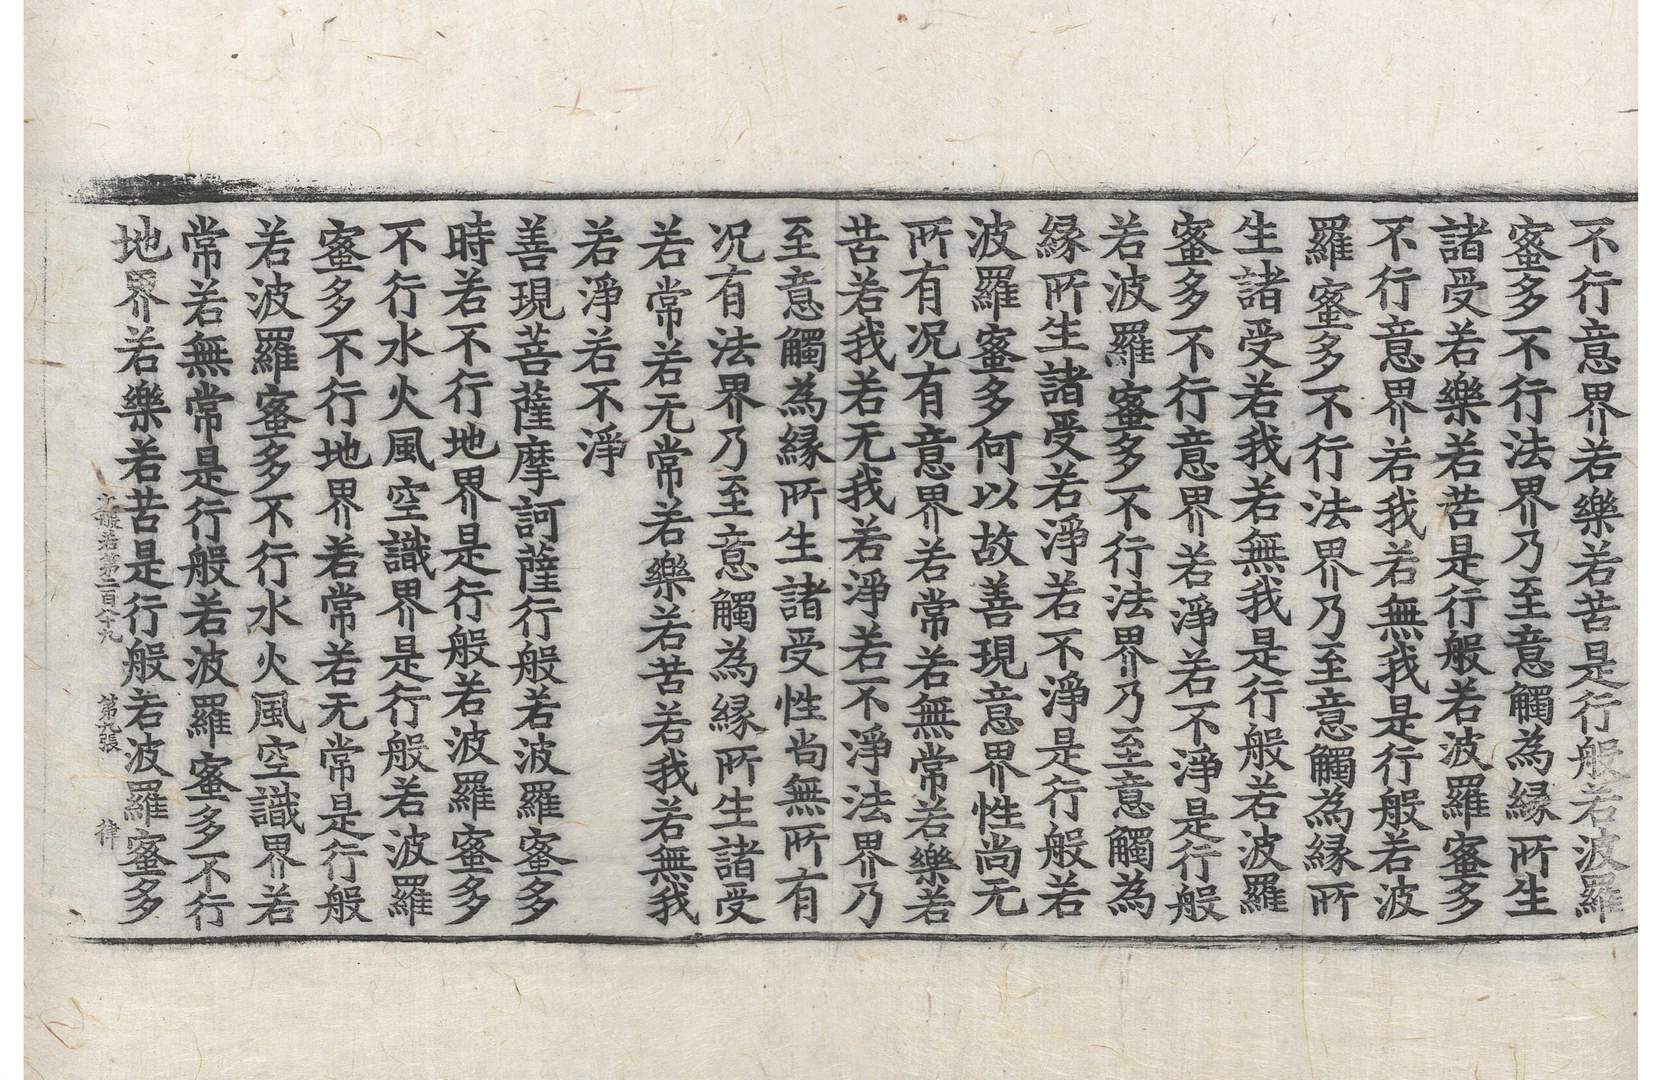 不行意界若樂若苦是行般若波羅
蜜多不行法界乃至意觸為縁所生
諸受若樂若苦是行般若波羅蜜多
不行意界若我若無我是行般若波
羅蜜多不行法界乃至意觸為縁所
生諸受若我若無我是行般若波羅
蜜多不行意界若淨若不淨是行般
若波羅蜜多不行法界乃至意觸為
縁所生諸受若淨若不淨是行般若
波羅蜜多何以故善現意界性尚无
所有况有意界若常若無常若樂若
苦若我若无我若淨若不淨法界乃
至意觸為縁所生諸受性尚無所有
况有法界乃至意觸為縁所生諸受
若常若无常若樂若苦若我若無我
若淨若不淨
善現菩薩摩訶薩行般若波羅蜜多
時若不行地界是行般若波羅蜜多
不行水火風空識界是行般若波羅
蜜多不行地界若常若无常是行般
若波羅蜜多不行水火風空識界若
常若無常是行般若波羅蜜多不行
地界若樂若苦是行般若波羅蜜多
大般若第二百八十九 第九張 律